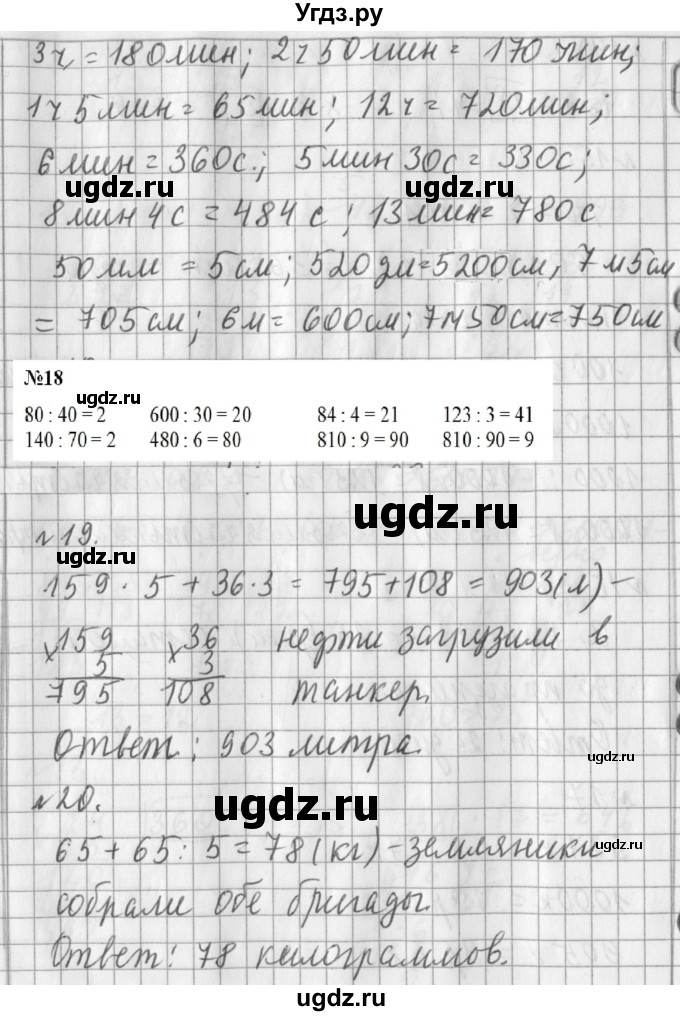 Угдз.ру
3ч = 180мин; 2ч50мин = 170мин;
1ч5мин = 65мин; 12ч = 720мин;
6мин = 360с.; 5мин30с = 330с;
ugdz.ru ugdz.ru
8мин4с = 484с; 13мин = 780с
50мм = 5см; 520дм = 5200см, 7м5см
= 705см; 6м = 600см; 7м50см = 750см
№18
ugdz.ru
80 : 40 = 2 600 : 30 = 20 84 : 4 = 21 123 : 3 = 41
140 : 70 = 2 480 : 6 = 80 810 : 9 = 90 810 : 90 = 9
ugdz.ru
№19.
ugdz.ru
159 · 5 + 36·3 = 795+108 = 903(л) –
×159 ×36 нефти загрузили в
5 3
795 108 танкер.
Ответ: 903 литра.
ugdz.ru
№20.
ugdz.ru
65+65:5=78(кг)-земляники
собрали обе бригады.
Ответ: 78 килограммов.
ugdz.ru
ugdz.ru